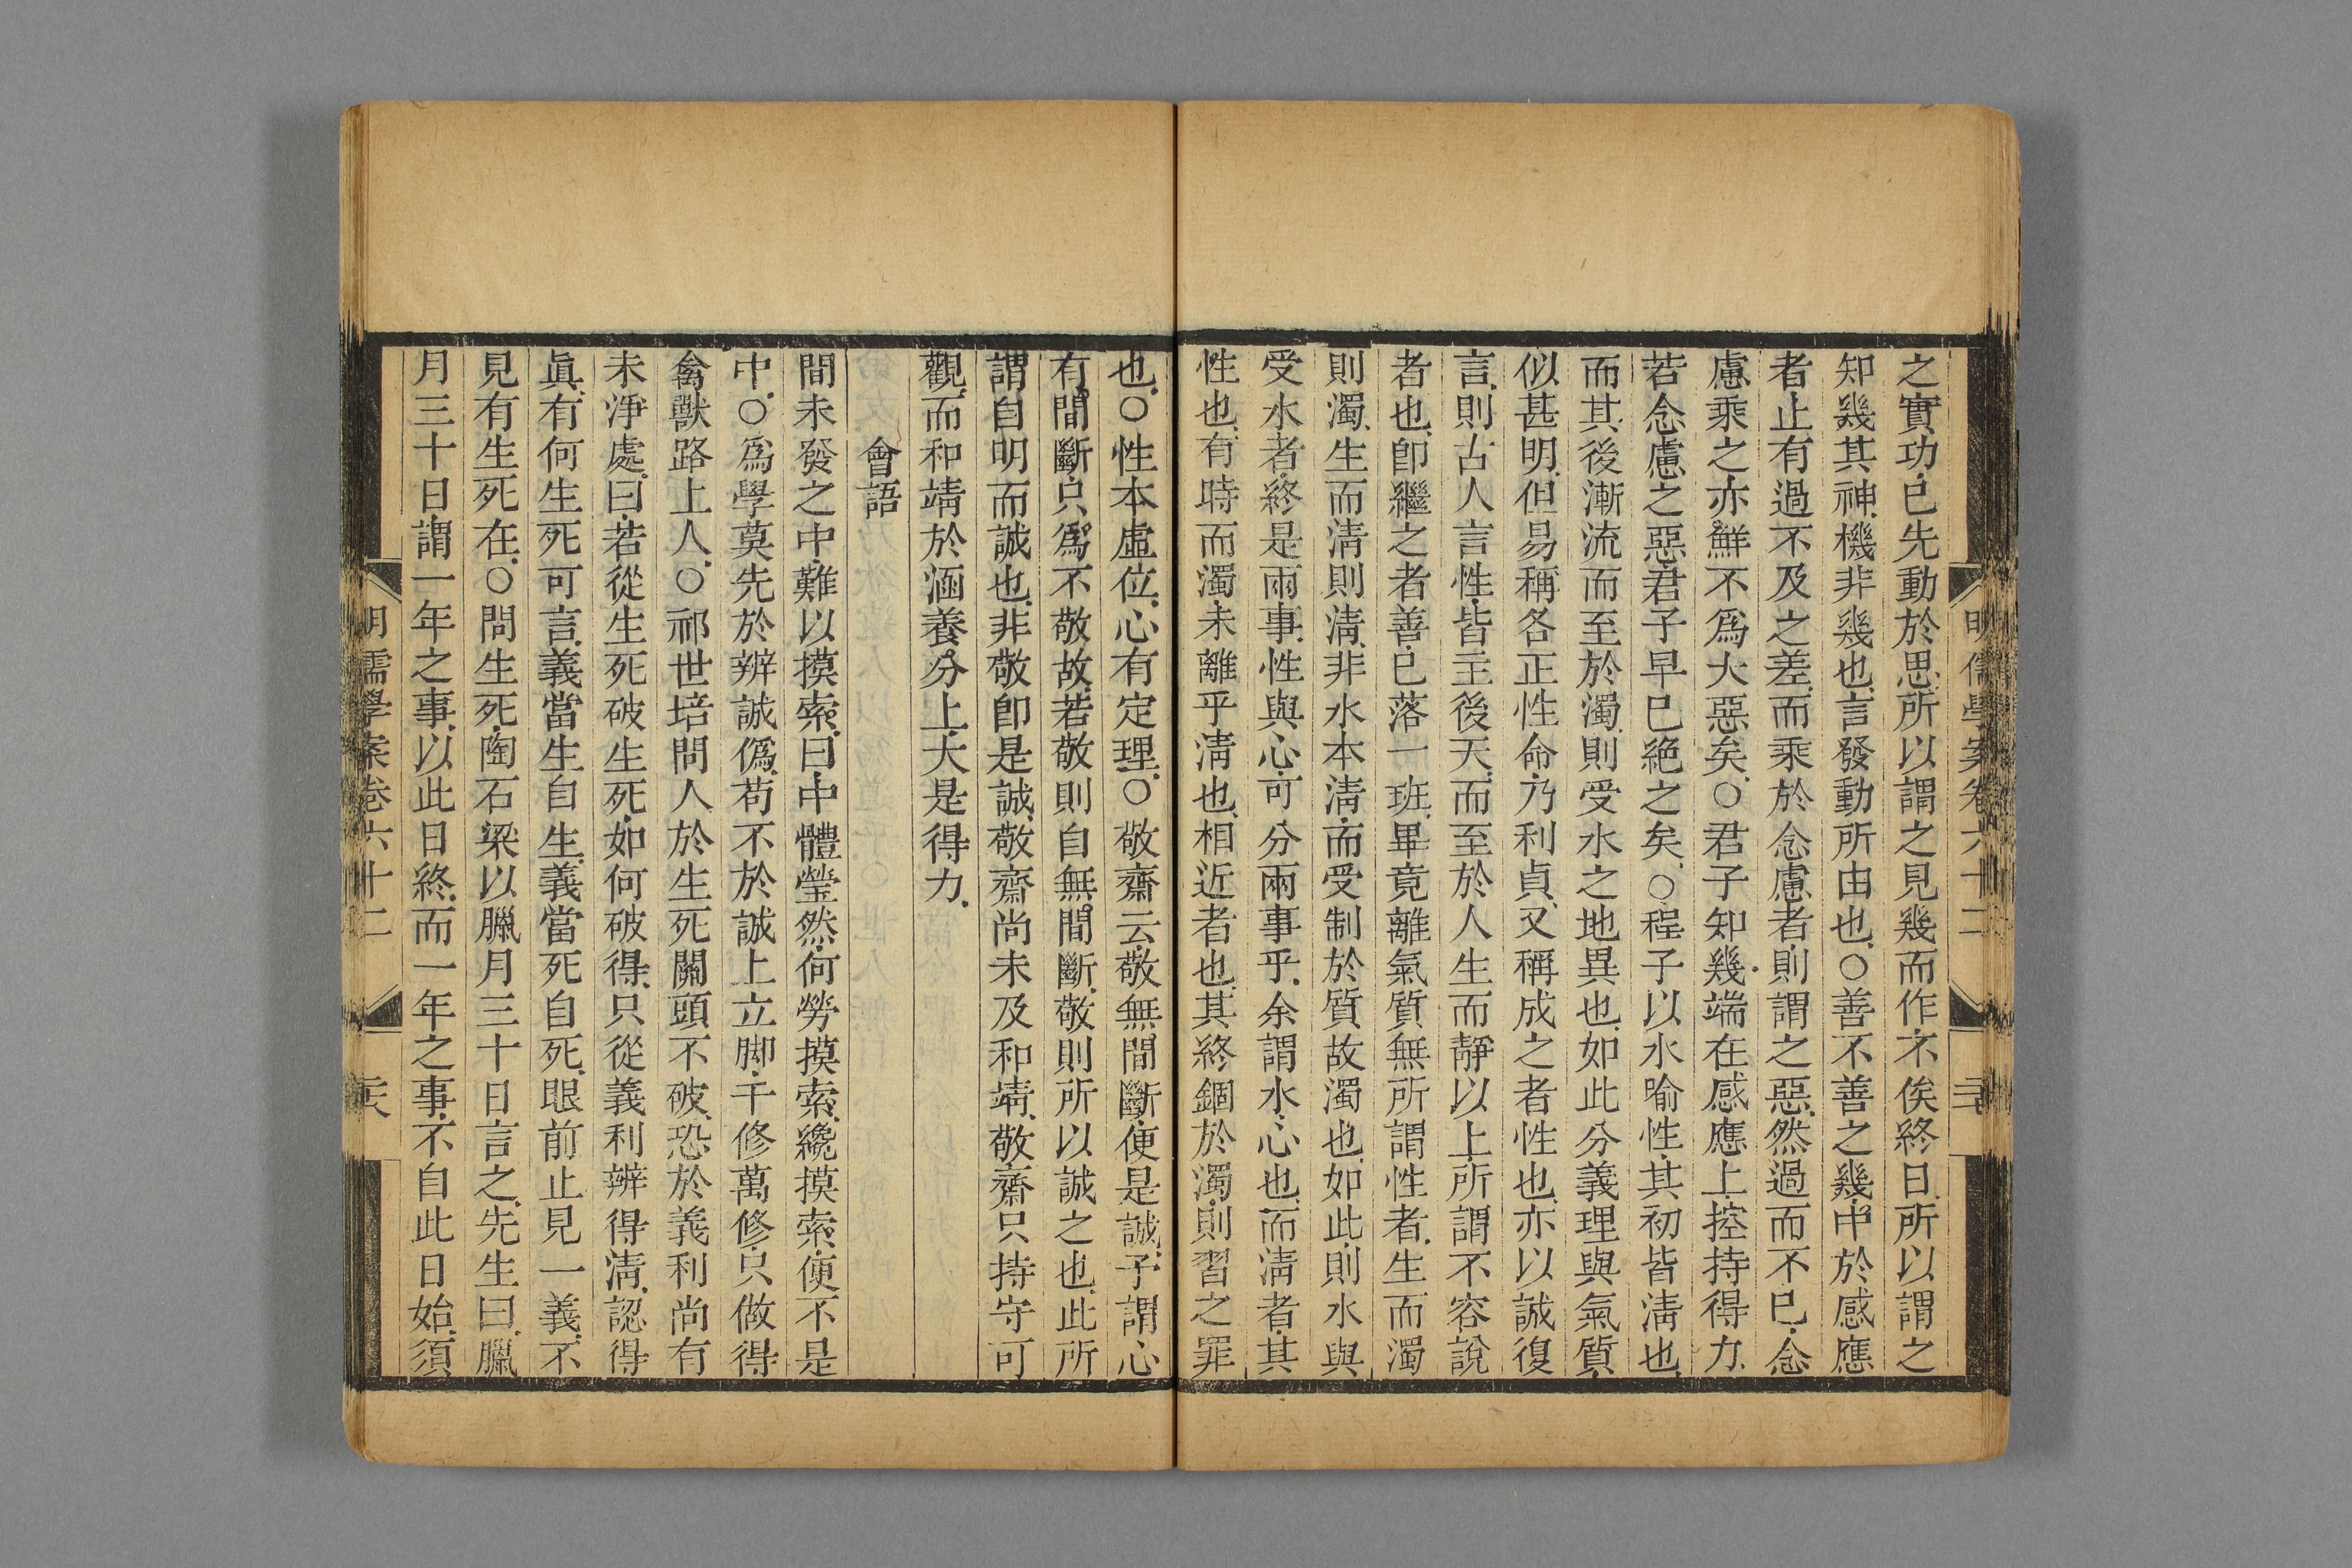 明儒學案卷六十二
之實功已先動於思所以謂之見幾而作不俟終日所以謂之
知幾其神機非幾也言發動所由也○善不善之幾中於感應
者止有過不及之差而乘於念慮者則謂之惡然過而不已念
慮乘之亦鮮不爲大惡矣○君子知幾端在感應上控持得力
若念慮之惡君子早已絶之矣○程子以水喻性其初皆淸也
而其後漸流而至於濁則受水之地異也如此分義理與氣質
似甚明但易稱各正性命乃利貞又稱成之者性也亦以誠復
言則古人言性皆主後天而至於人生而靜以上所謂不容說
者也卽繼之者善已落一班畢竟離氣質無所謂性者生而濁
則濁生而淸則淸非水本淸而受制於質故濁也如此則水與
受水者終是兩事性與心可分兩事乎余謂水心也而淸者其
性也有時而濁未離乎淸也相近者也其終錮於濁則習之罪
也○性本虛位心有定理○敬齋云敬無間斷便是誠予謂心
有間斷只爲不敬故若敬則自無間斷敬則所以誠之也此所
謂自明而誠也非敬卽是誠敬齋尚未及和靖敬齋只持守可
觀而和靖於涵養分上大是得力
會語
間未發之中難以摸索曰中體瑩然何勞摸索纔摸索便不是
中○爲學莫先於辨誠僞苟不於誠上立脚千修萬修只做得
禽獸路上人○祁世培問人於生死關頭不破恐於義利尚有
未淨處曰若從生死破生死如何破得只從義利辨得淸認得
眞有何生死可言義當生自生義當死自死眼前止見一義不
見有生死在○問生死陶石梁以臘月三十日言之先生曰臘
月三十日謂一年之事以此日終而一年之事不自此日始須
明儒學案卷六十二